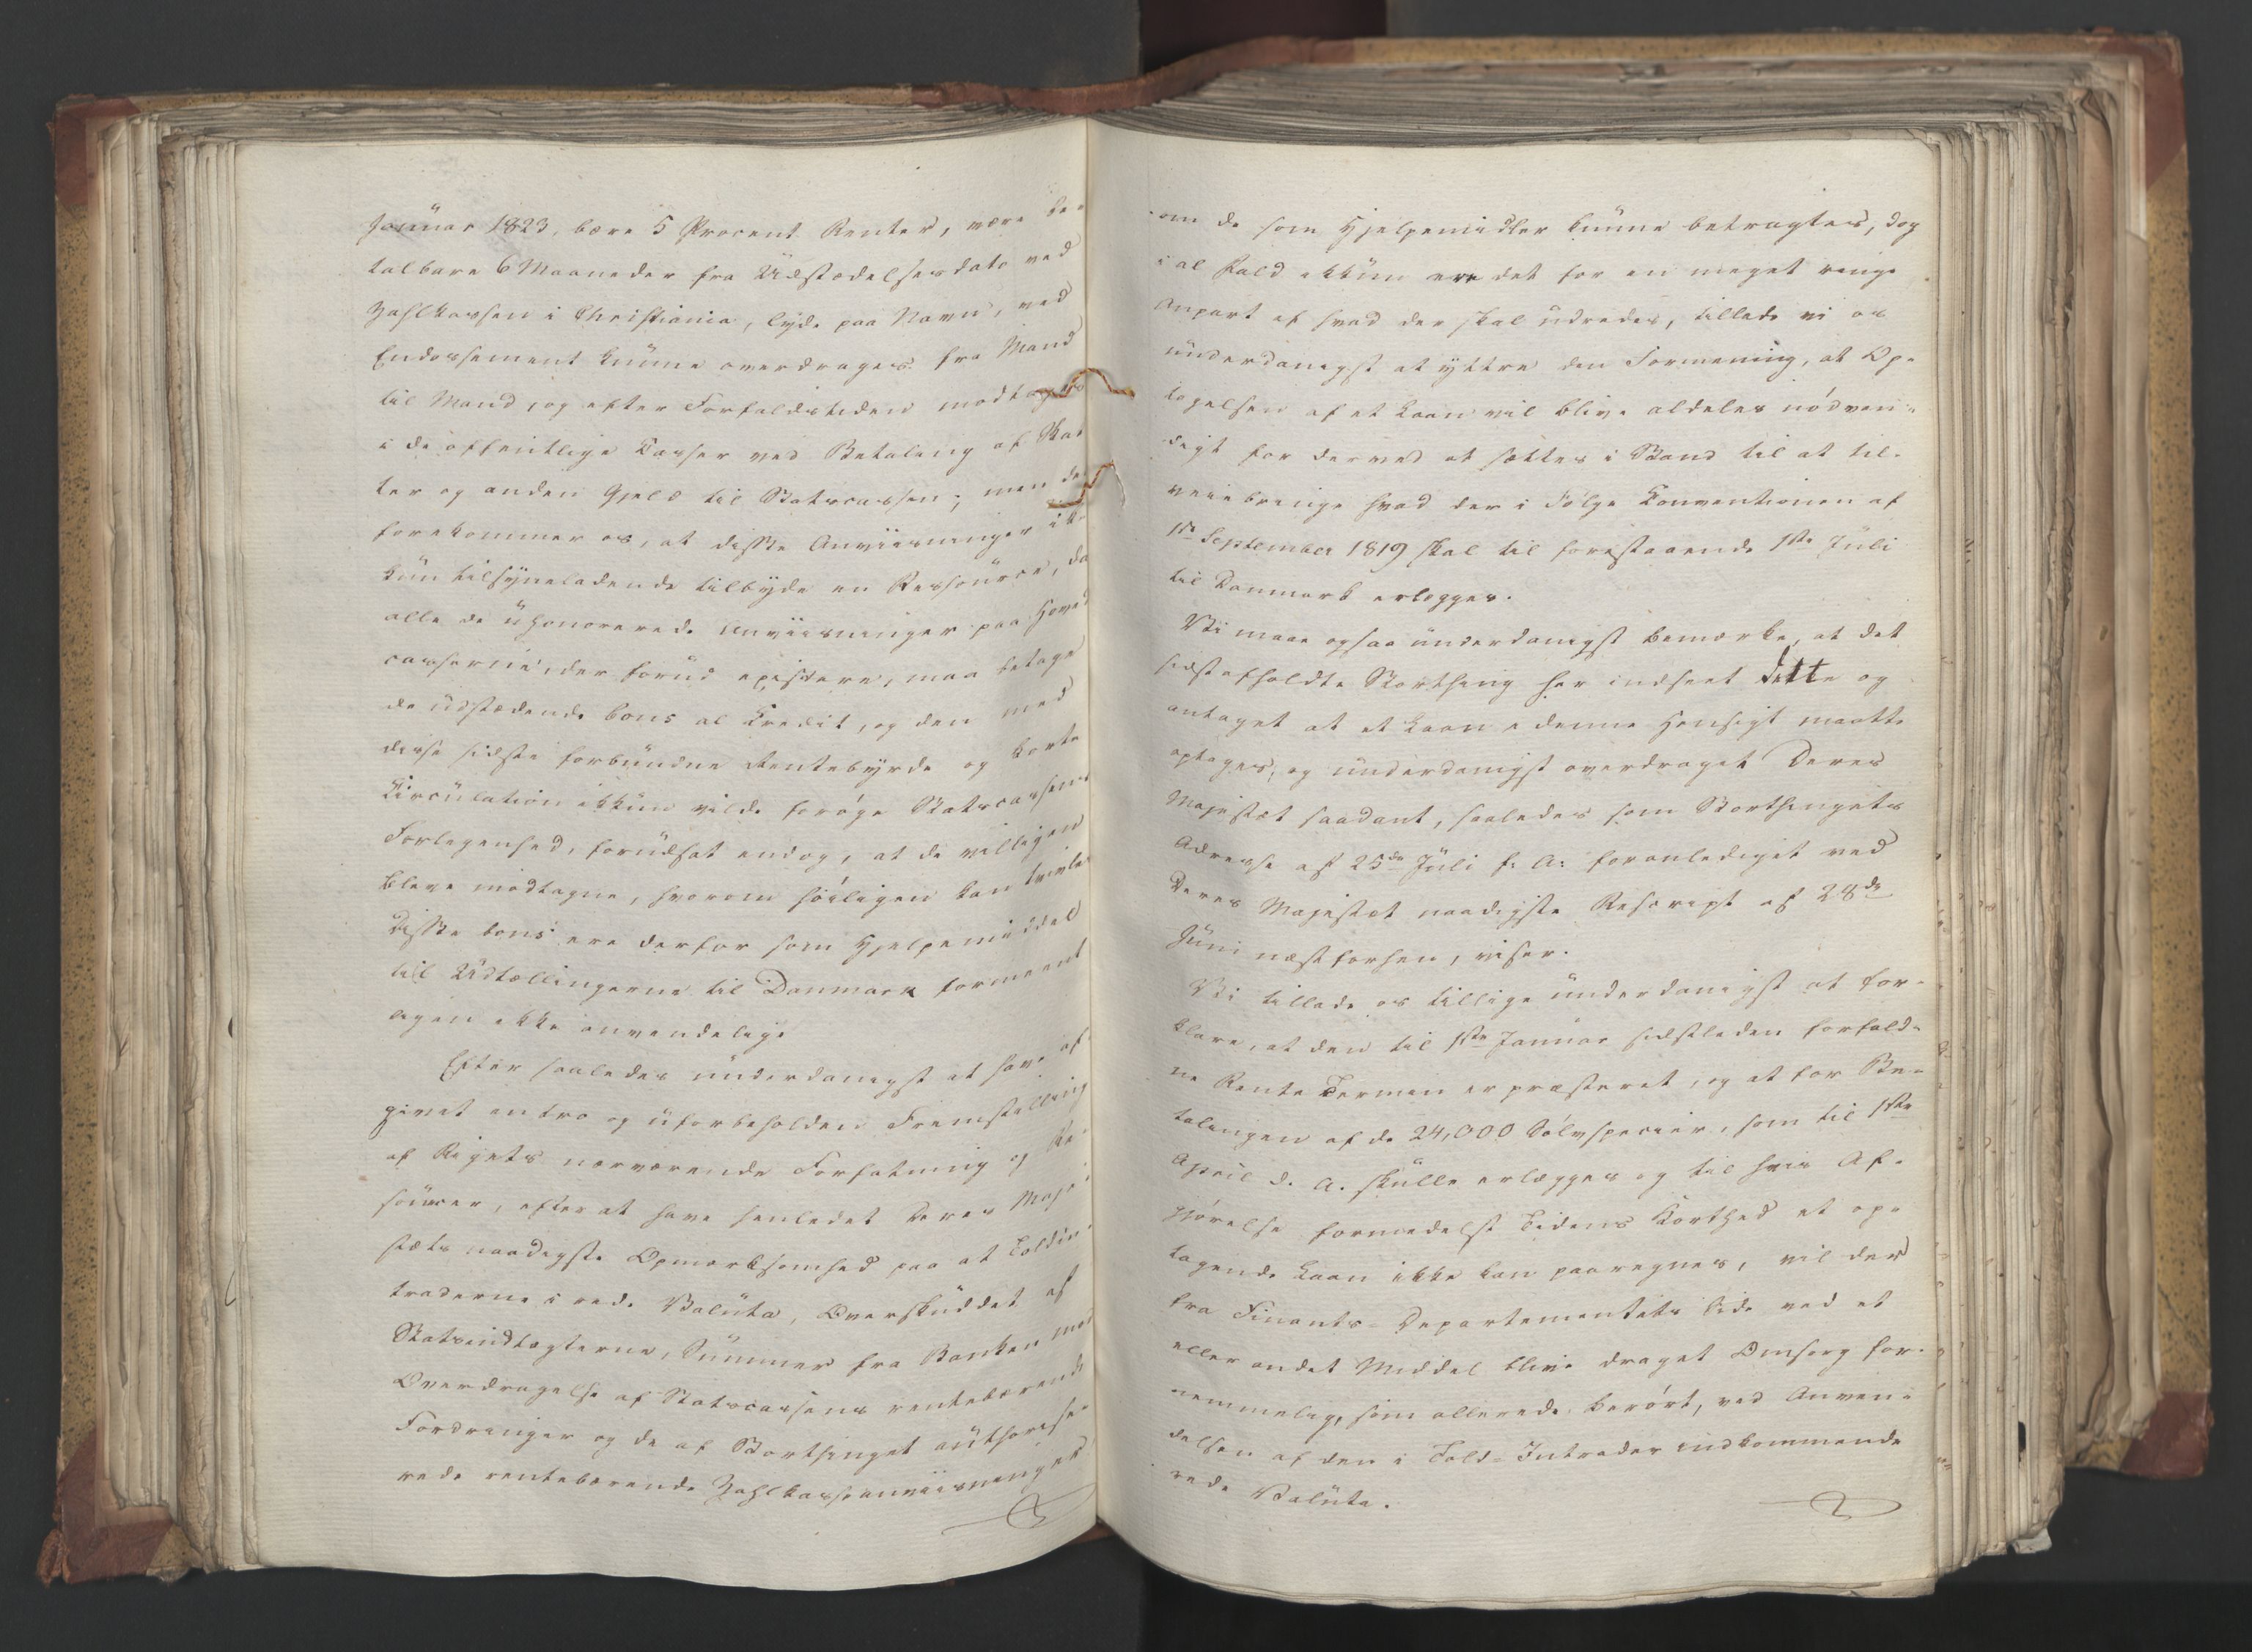 Januar 1823, bære 5 Procent Renter, være be-
talbare 6 Maaneder fra Udstædelsesdato ved
Zahlkassen i Christiania, lyde paa Navn, ved
Endossement kunne overdrages fra Mand
til Mand, og efter Forfaldstiden modtages
i de offentlige Casser ved Betaling af Skat-
ter og anden Gjeld til Statscassen; men det
forekommer os, at disse Anviisninger ik-
kun tilsyneladende tilbyde en Ressource, da
alle de uhonorerede Anviisninger paa Hoved-
casserne, der forud existere, maa betage
de udstædende bons al Credit, og den med
disse sidste forbundne Rentebyrde og korte
Circulation ikkun vilde forøge Statscassens
Forlegenhed, forudsat endog, at de villigen
bleve modtagne, hvorom høiligen kan tvivles
Disse bons ere derfor som Hjelpemiddel
til Udtællingerne til Danmark formeent-
ligen ikke anvendelige
Efter saaledes underdanigst at have af-
givet en tro og uforbeholden Fremstilling
af Rigets nærværende Forfatning og Re-
sourcer, efter at have henledet Deres Maje-
stæts naadigste Opmærksomhed paa at Toldin-
traderne i rede Valuta, Overskuddet af
Statsindtægterne, Summer fra Banken mod
Overdragelse af Statscassens rentebærende
Fordringer og de af Storthinget authorise-
rede rentebærende Zahlkasseanviisninger
om de som Hjelpemidler kunne betragtes, dog
i al Fald ikkun ere det for en meget ringe
Anpart af hvad der skal udredes, tillade vi os
underdanigst at yttre den Formening, at Op-
tagelsen af et Laan vil blive aldeles nødven-
digt for derved at sættes i Stand til at til-
veiebringe hvad der i Følge Conventionen af
1ste September 1819 skal til forestaaende 1ste Juli
til Danmark erlægges.
Vi maae ogsaa underdanigst bemærke, at det
sidst afholdte Storthing har indseet dette og
antaget at et Laan i denne Hensigt maatte
optages, og underdanigst overdraget Deres
Majestæt saadant, saaledes som Storthingets
Adresse af 25de Juli f: A: foranlediget ved
Deres Majestæt naadigste Rescript af 28de
Juni næst forhen, viser.
Vi tillade os tillige underdanigst at for-
klare, at den til 1ste Januar sidstleden forfald-
ne Rente Termin er præsteret, og at for Be-
talingen af de 24,000 Sølvspecier, som til 1ste
April d. A. skulle erlægges og til hvis Af-
gjørelse formedelst Tidens Korthed et op-
tagende Laan ikke kan paaregnes, vil der
fra Finants-Departementets Side ved et
eller andet Middel blive draget Omsorg for
nemmelig, som allerede berørt, ved Anven-
delsen af den i Told-Intrader indkommende
rede Valuta.